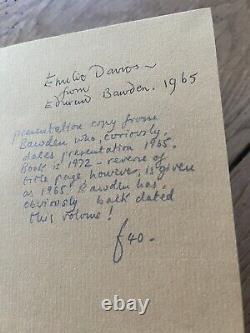 Emilio Davros
from
Edward Bawden. 1965
presentation copy from
Bawden who, curiously,
dates presentation 1965.
Book is 1972 - reverse of
title page, however, is given
as 1965. Bawden has
obviously back dated
this volume!
£40-